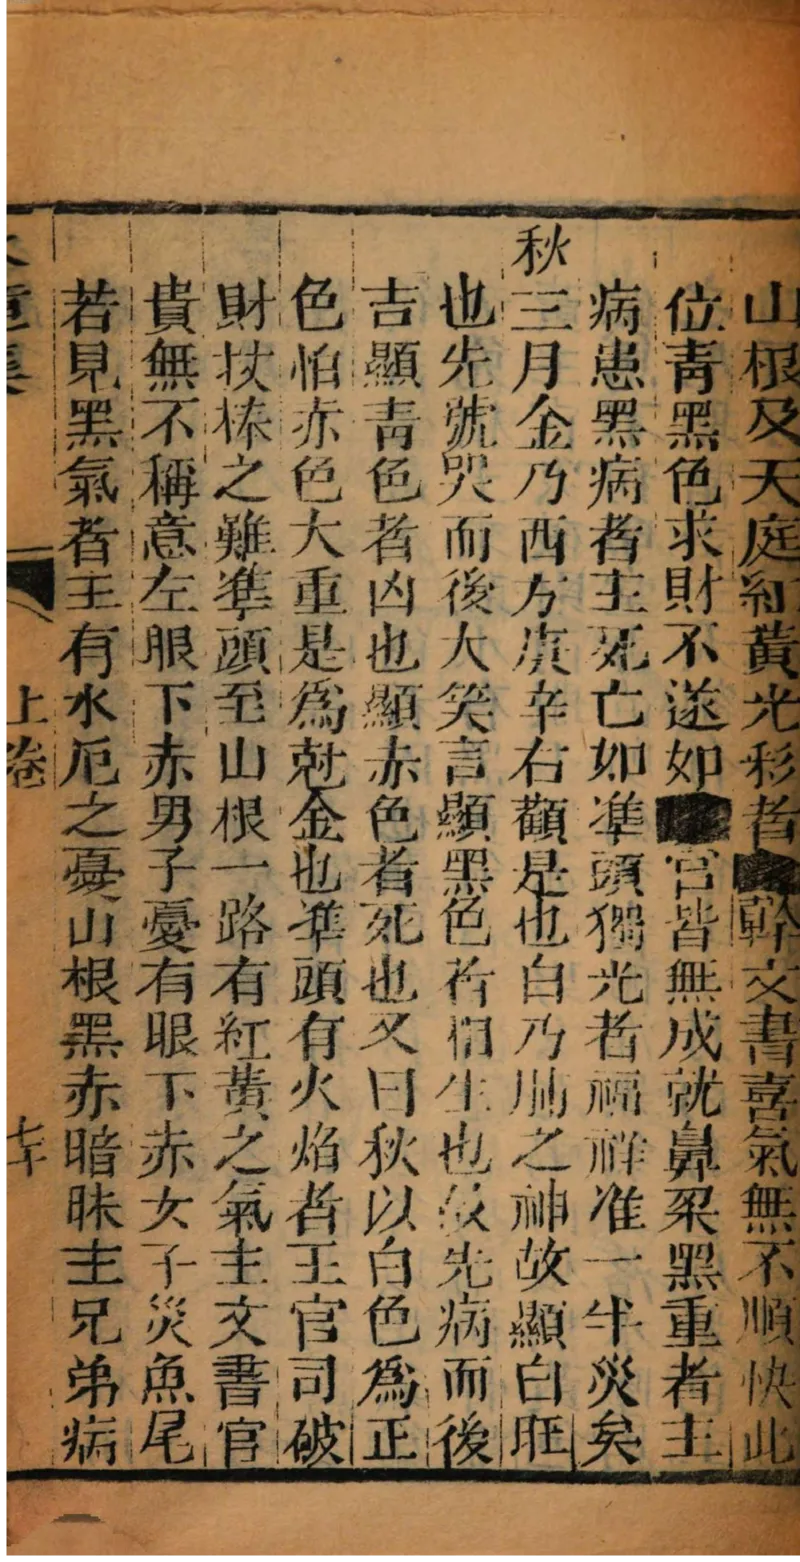 山根及天庭紅黃光彩者幹文書喜氣無不順快此
位靑黑色求財不遂如官皆無成就鼻梁黑重者主
病患黑病者主死亡如凖頭獨光者福祥准一半災矣
秋三月金乃西方庚辛右顴是也白乃肺之神故顯白旺
也先號哭而後大笑言顯黑色者相生也故先病而後
吉顯靑色者凶也顯赤色者死也又曰秋以白色爲正
色怕赤色大重是爲尅金也凖頭有火焰者主官司破
財杖棒之難凖頭至山根一路有紅黃之氣主文書官
貴無不稱意左眼下赤男子憂有眼下赤女子災魚尾
若見黑氣者主有水厄之憂山根黑赤暗昧主兄弟病
上卷